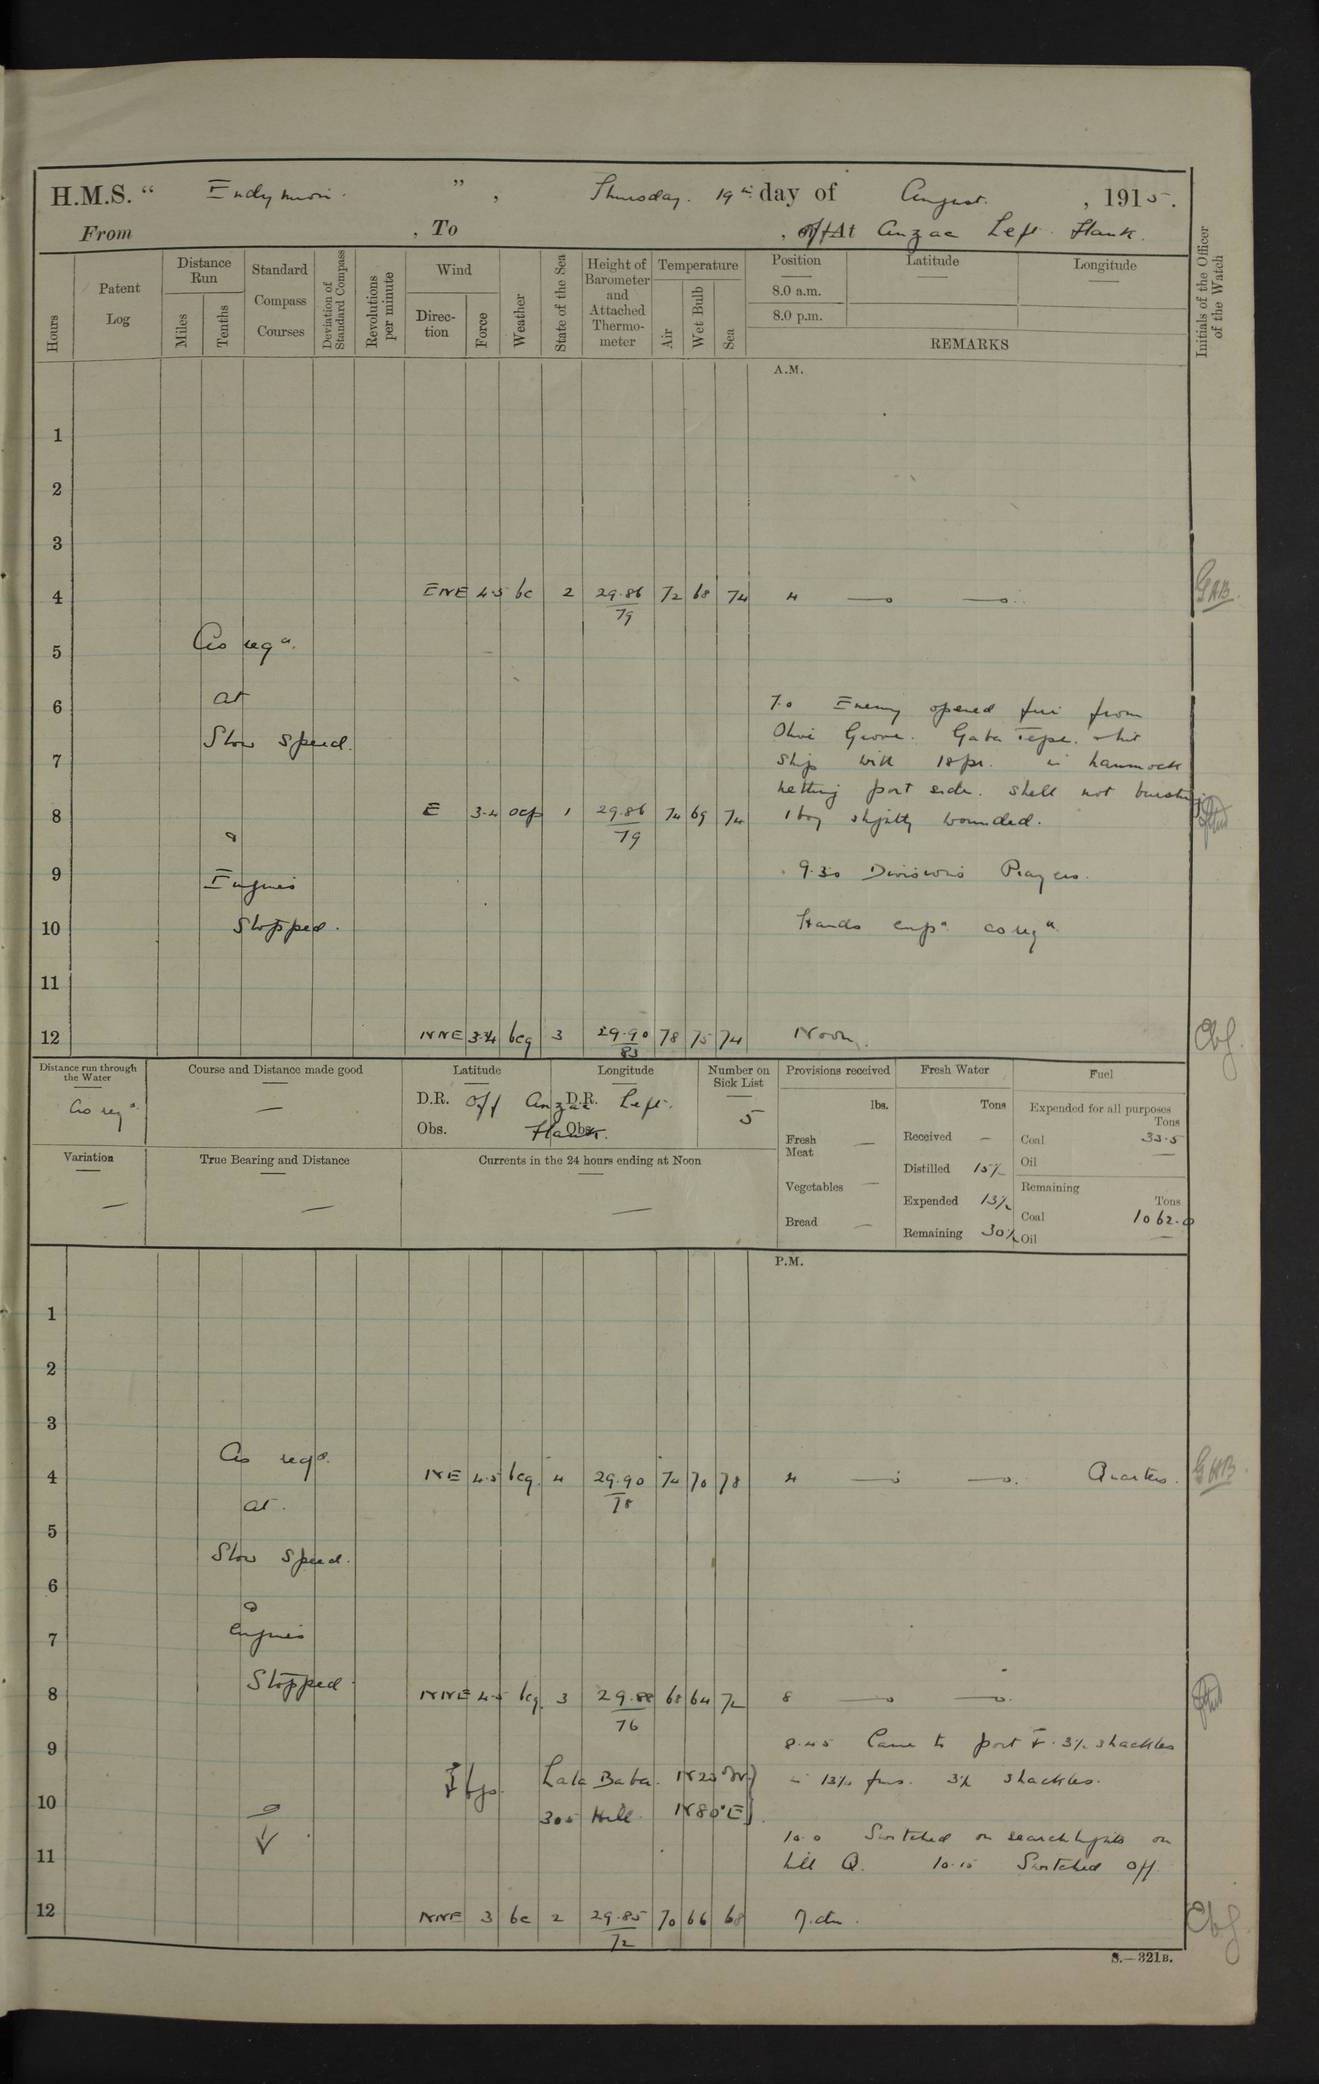 H.M.S. “ Endymion. ” , Thursday. 19th day of August. , 1915.
From , To , off At Anzac Left Flank.
Hours
Patent Log
Distance Run
Miles
Tenths
Standard Compass Courses
Deviation of Standard Compass
Revolutions per minute
Wind
Direction
Force
Weather
State of the Sea
Height of Barometer and Attached Thermometer
Temperature
Air
Wet Bulb
Sea
Position
8.0 a.m.
8.0 p.m.
Latitude
Longitude
REMARKS
Initials of the Officer of the Watch
A.M.
1
2
3
4 ENE 4.5 bc 2 29.86/79 72 68 74 4 GAB.
As reqd.
5
at
6
7.0 Enemy opened fire from
Slow Speed.
Olive Grove. Gaba Tepe. & hit
7
ship with 18pr. in hammock
netting port side. shell not bursting
8 E 3.4 ocp 1 29.86/79 74 69 74 1 boy slightly wounded.
&
9 9.30 Divisions Prayers.
Engines
10 Stopped. Hands empd. as reqd.
11
12 NNE 3.4 bcq 3 29.90/83 78 75 74 Noon.
Distance run through the Water
As reqd.
Course and Distance made good
—
Latitude
Longitude
D.R. off Anzac D.R. Left.
Obs. Flank. Obs.
Number on Sick List
5
Provisions received
lbs.
Fresh Meat —
Vegetables —
Bread —
Fresh Water
Tons
Received —
Distilled 15½
Expended 13½
Remaining 30½
Fuel
Expended for all purposes
Tons
Coal 33.5
Oil —
Remaining
Tons
Coal 1062.0
Oil —
Variation
—
True Bearing and Distance
—
Currents in the 24 hours ending at Noon
—
P.M.
1
2
3
As reqd.
4 NE 4.5 bcq. 4 29.90/78 74 70 78 4 Quarters. GAB
at.
5
Slow Speed.
6
&
7 Engines
Stopped.
8 NNE 4.5 bcq. 3 29.88/76 68 64 72 8
8.45 Came to port. 3½ shackles
9
bgs. Lala Baba. N23°W} in 13½ fms. 3½ shackles.
10 305 Hill N80°E}
10.0 Switched on searchlights on
11 hill Q. 10.15 Switched off
12 NNE 3 bc 2 29.85/72 70 66 68
S.—321B.